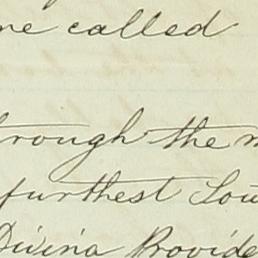 me called
through the m
furthest Sou
Divina Provide